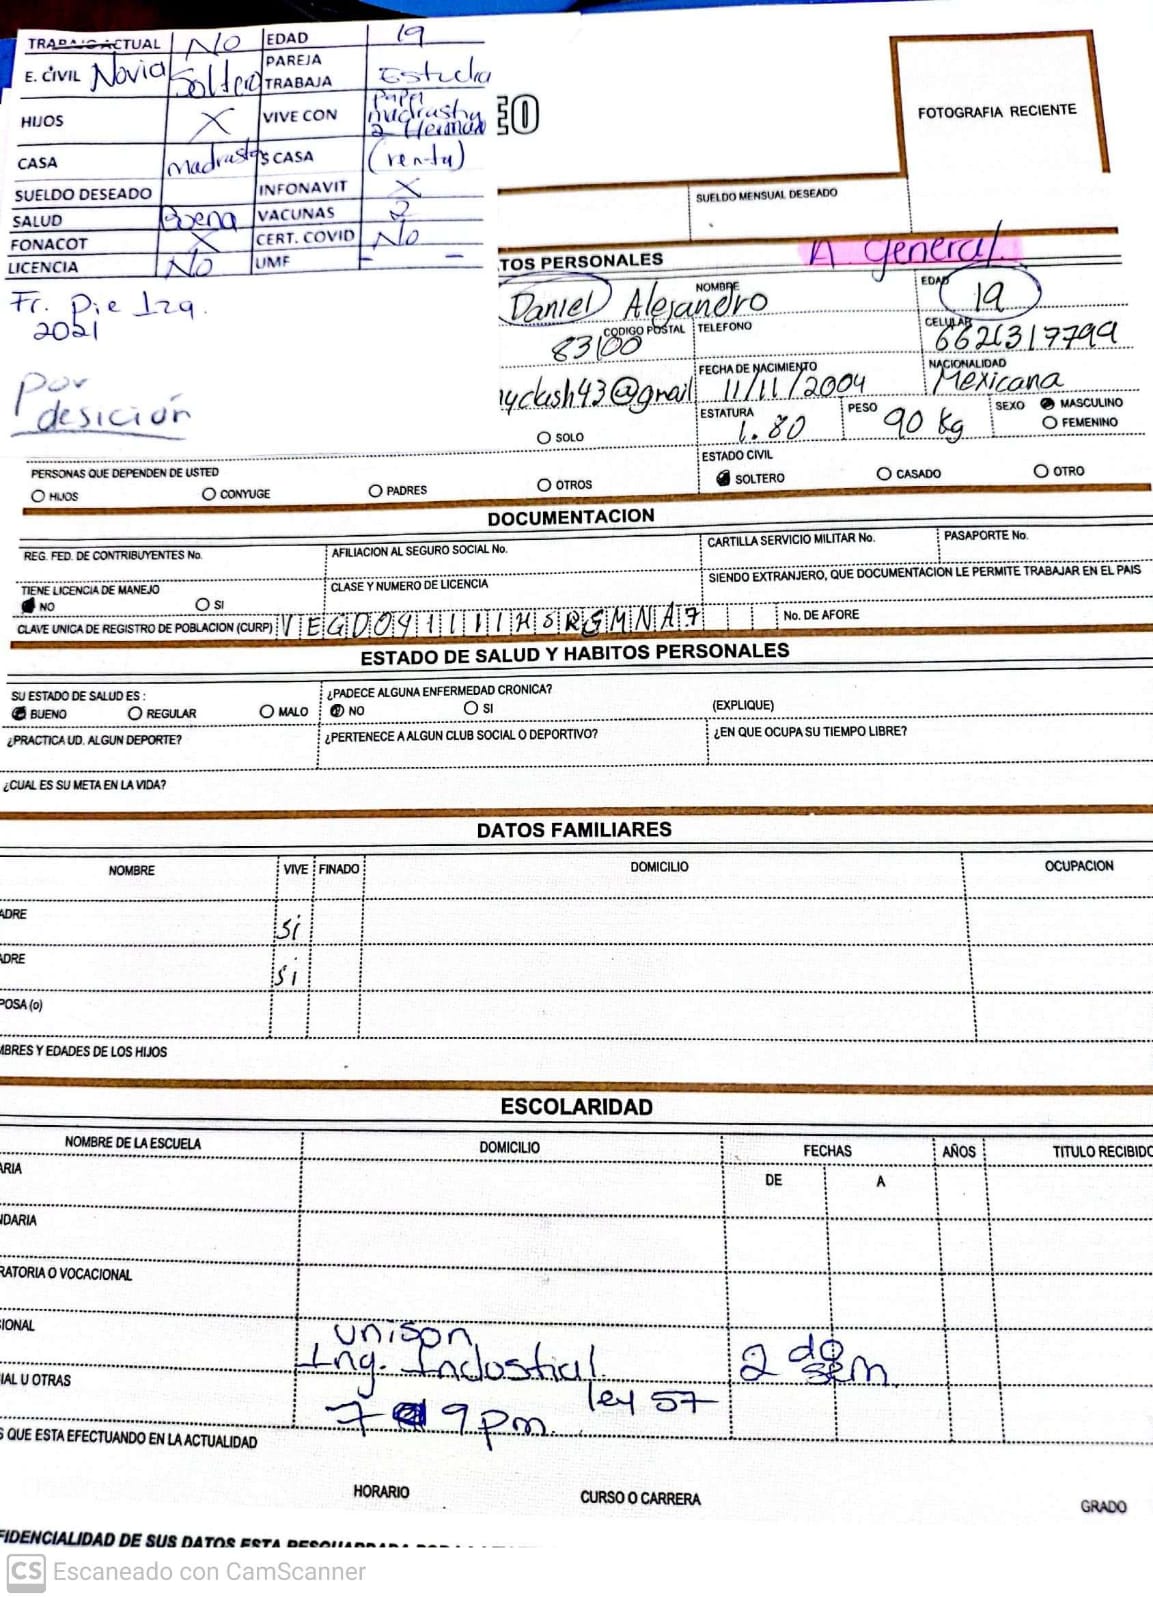 TRABAJO ACTUAL NO EDAD 19
E. CIVIL Novia Soltero PAREJA TRABAJA Estudia
HIJOS X VIVE CON papá madrastra 2 Herman
CASA madrastra S CASA (renta)
SUELDO DESEADO INFONAVIT X
SALUD Buena VACUNAS 2
FONACOT X CERT. COVID No
LICENCIA No UMF - -
Fr. Pie Izq.
2021
por
desición
EO
FOTOGRAFIA RECIENTE
SUELDO MENSUAL DESEADO
A general.
TOS PERSONALES
NOMBRE
Daniel Alejandro
EDAD
19
CODIGO POSTAL
83100
TELEFONO
CELULAR
6621317799
FECHA DE NACIMIENTO
11/11/2004
NACIONALIDAD
Mexicana
@gmail
ESTATURA
1.80
PESO
90 kg
SEXO MASCULINO
FEMENINO
SOLO
PERSONAS QUE DEPENDEN DE USTED
HIJOS CONYUGE PADRES OTROS
ESTADO CIVIL
SOLTERO CASADO OTRO
DOCUMENTACION
REG. FED. DE CONTRIBUYENTES No. AFILIACION AL SEGURO SOCIAL No. CARTILLA SERVICIO MILITAR No. PASAPORTE No.
TIENE LICENCIA DE MANEJO CLASE Y NUMERO DE LICENCIA SIENDO EXTRANJERO, QUE DOCUMENTACION LE PERMITE TRABAJAR EN EL PAIS
NO SI
CLAVE UNICA DE REGISTRO DE POBLACION (CURP) VEGD041111HSRGMNA7 No. DE AFORE
ESTADO DE SALUD Y HABITOS PERSONALES
SU ESTADO DE SALUD ES : ¿PADECE ALGUNA ENFERMEDAD CRONICA?
BUENO REGULAR MALO NO SI (EXPLIQUE)
¿PRACTICA UD. ALGUN DEPORTE? ¿PERTENECE A ALGUN CLUB SOCIAL O DEPORTIVO? ¿EN QUE OCUPA SU TIEMPO LIBRE?
¿CUAL ES SU META EN LA VIDA?
DATOS FAMILIARES
NOMBRE VIVE FINADO DOMICILIO OCUPACION
ADRE si
ADRE si
POSA (o)
MBRES Y EDADES DE LOS HIJOS
ESCOLARIDAD
NOMBRE DE LA ESCUELA DOMICILIO FECHAS AÑOS TITULO RECIBIDO
DE A
ARIA
NDARIA
RATORIA O VOCACIONAL
SIONAL unison
Ing. Indostial. 2 do sem.
IAL U OTRAS
ley 57
7 a 9 pm.
S QUE ESTA EFECTUANDO EN LA ACTUALIDAD
HORARIO CURSO O CARRERA GRADO
FIDENCIALIDAD DE SUS DATOS ESTA RESGUARDADA
CS Escaneado con CamScanner